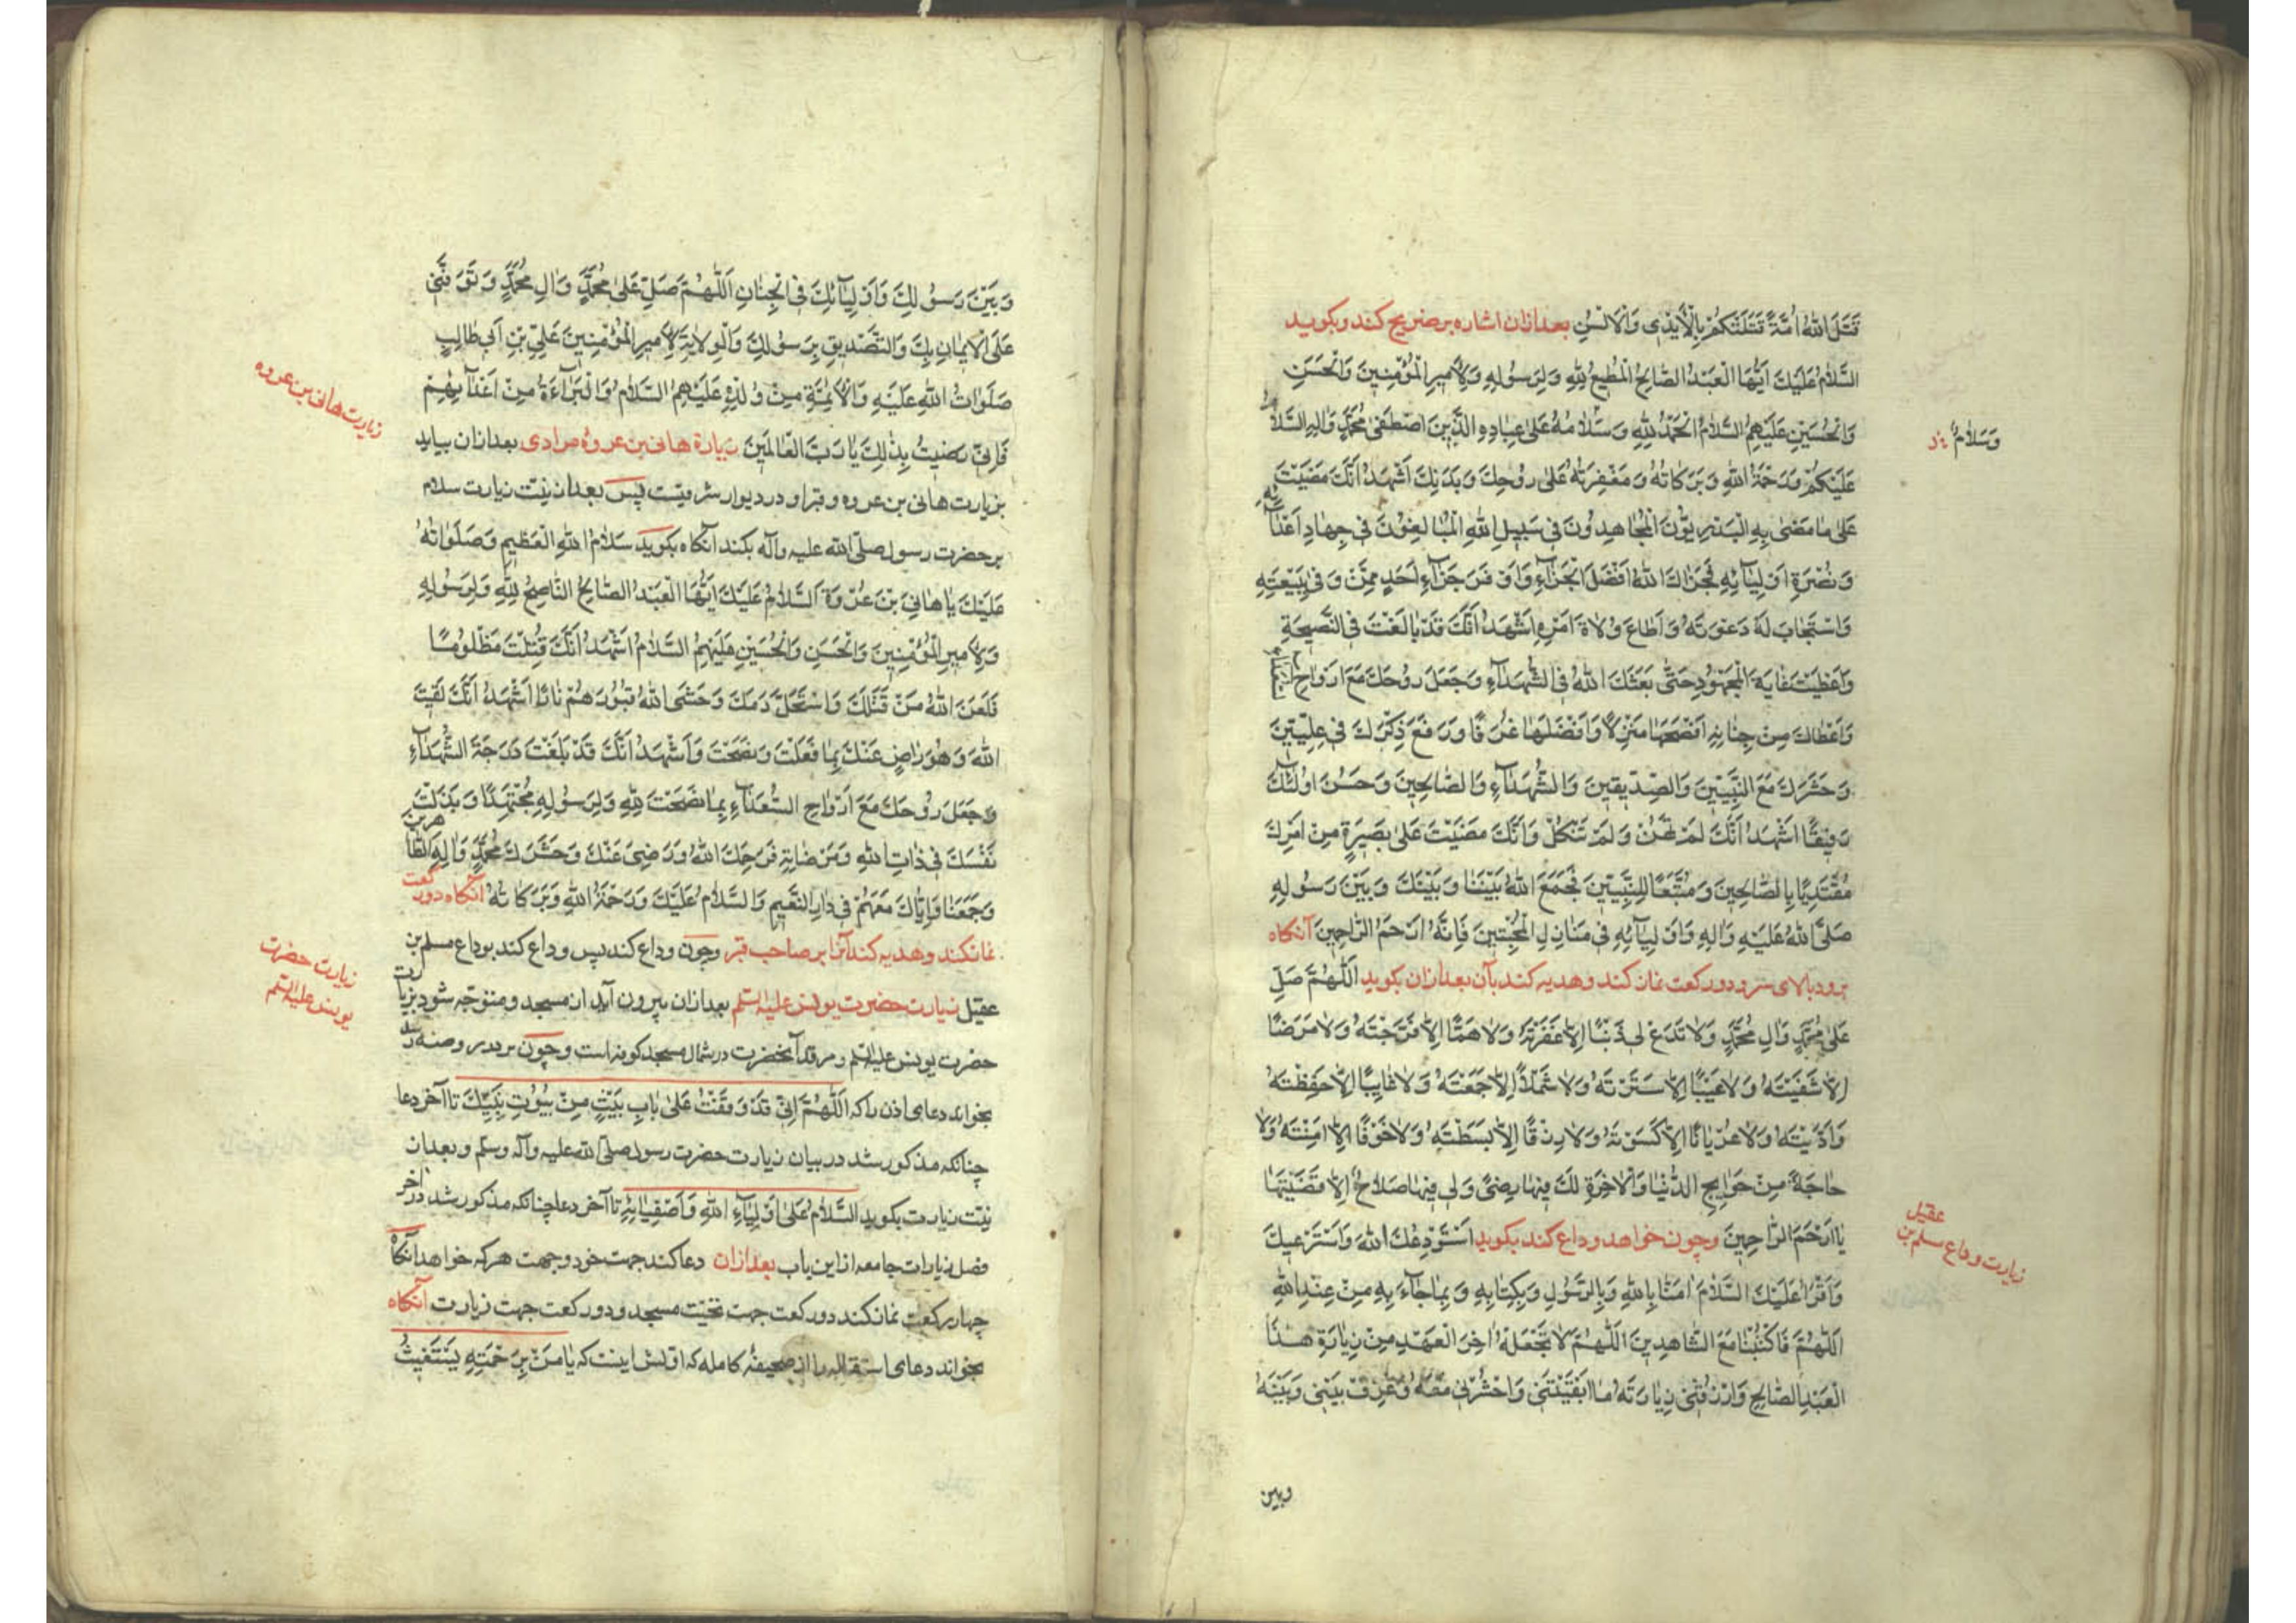 قَتَلَ اللهُ اُمَّةً قَتَلَتْكُمْ بِالْاَيْدِي وَالْاَلْسُنِ بعدازان اشاره بر ضریح کند و بکوید
اَلسَّلامُ عَلَيْكَ اَيُّهَا الْعَبْدُ الصَّالِحُ الْمُطِيعُ لِلّهِ وَلِرَسُولِهِ وَلِاَمِيرِ الْمُؤْمِنِينَ وَالْحَسَنِ
وَالْحُسَيْنِ عَلَيْهِمُ السَّلامُ اَلْحَمْدُ لِلّهِ وَسَلامُهُ عَلى عِبادِهِ الَّذِينَ اصْطَفى مُحَمَّدٍ وَالِهِ السَّلامُ
وَسَلامٌ
عَلَيْكُمْ وَرَحْمَةُ اللهِ وَبَرَكاتُهُ وَمَغْفِرَتُهُ عَلى رُوحِكَ وَبَدَنِكَ اَشْهَدُ اَنَّكَ مَضَيْتَ
عَلى ما مَضى بِهِ الْبَدْرِيُّونَ الْمُجاهِدُونَ فِي سَبِيلِ اللهِ الْمُبالِغُونَ فِي جِهادِ اَعْدائِهِ
وَنُصْرَةِ اَوْلِيآئِهِ فَجَزاكَ اللهُ اَفْضَلَ الْجَزآءِ وَاَوْفَرَ جَزآءِ اَحَدٍ مِمَّنْ وَفى بِبَيْعَتِهِ
وَاسْتَجابَ لَهُ دَعْوَتَهُ وَاَطاعَ وُلاةَ اَمْرِهِ اَشْهَدُ اَنَّكَ قَدْ بالَغْتَ فِي النَّصِيحَةِ
وَاَعْطَيْتَ غايَةَ الْمَجْهُودِ حَتّى بَعَثَكَ اللهُ فِي الشُّهَدآءِ وَجَعَلَ رُوحَكَ مَعَ اَرْواحِ
وَاَعْطاكَ مِنْ جِنانِهِ اَفْسَحَها مَنْزِلًا وَاَفْضَلَها غُرَفًا وَرَفَعَ ذِكْرَكَ فِي عِلِّيِّينَ
وَحَشَرَكَ مَعَ النَّبِيِّينَ وَالصِّدِّيقِينَ وَالشُّهَدآءِ وَالصَّالِحِينَ وَحَسُنَ اُولئِكَ
رَفِيقًا اَشْهَدُ اَنَّكَ لَمْ تَهُنْ وَلَمْ تَنْكُلْ وَاَنَّكَ مَضَيْتَ عَلى بَصِيرَةٍ مِنْ اَمْرِكَ
مُقْتَدِيًا بِالصَّالِحِينَ وَمُتَّبَعًا لِلنَّبِيِّينَ فَجَمَعَ اللهُ بَيْنَنا وَبَيْنَكَ وَبَيْنَ رَسُولِهِ
صَلَّى اللهُ عَلَيْهِ وَالِهِ وَاَوْلِيآئِهِ فِي مَنازِلِ الْمُخْبِتِينَ فَاِنَّهُ اَرْحَمُ الرَّاحِمِينَ آنکاه
برود بالای سر و دو رکعت نماز کند و هدیه کند بآن بعدازان بکوید اَللّهُمَّ صَلِّ
عَلى مُحَمَّدٍ وَالِ مُحَمَّدٍ وَلا تَدَعْ لِي ذَنْبًا اِلاَّ غَفَرْتَهُ وَلا هَمًّا اِلاَّ فَرَّجْتَهُ وَلا مَرَضًا
اِلاَّ شَفَيْتَهُ وَلا عَيْبًا اِلاَّ سَتَرْتَهُ وَلا شَمْلًا اِلاَّ جَمَعْتَهُ وَلا غايِبًا اِلاَّ حَفِظْتَهُ
وَاَدَّيْتَهُ وَلا عُرْيانًا اِلاَّ كَسَوْتَهُ وَلا رِزْقًا اِلاَّ بَسَطْتَهُ وَلا خَوْفًا اِلاَّ امِنْتَهُ وَلا
حاجَةً مِنْ حَوايِجِ الدُّنْيا وَالْاخِرَةِ لَكَ فِيها رِضًى وَلِي فِيها صَلاحٌ اِلاَّ قَضَيْتَها
يا اَرْحَمَ الرَّاحِمِينَ وچون خواهد وداع کند بکوید اَسْتَوْدِعُكَ اللهَ وَاَسْتَرْعِيكَ
زیارت وداع مسلم بن عقیل
وَاَقْرَاُ عَلَيْكَ السَّلامَ امَنَّا بِاللهِ وَبِالرَّسُولِ وَبِكِتابِهِ وَبِما جآءَ بِهِ مِنْ عِنْدِ اللهِ
اَللّهُمَّ فَاكْتُبْنا مَعَ الشَّاهِدِينَ اَللّهُمَّ لا تَجْعَلْهُ اخِرَ الْعَهْدِ مِنْ زِيارَةِ هذَا
الْعَبْدِ الصَّالِحِ وَارْزُقْنِي زِيارَتَهُ ما اَبْقَيْتَنِي وَاحْشُرْنِي مَعَهُ وَعَرِّفْ بَيْنِي وَبَيْنَهُ
وبین
وَبَيْنَ رَسُولِكَ وَاَوْلِيآئِكَ فِي الْجِنانِ اَللّهُمَّ صَلِّ عَلى مُحَمَّدٍ وَالِ مُحَمَّدٍ وَتَوَفَّنِي
عَلَى الْاِيمانِ بِكَ وَالتَّصْدِيقِ بِرَسُولِكَ وَالْوِلايَةِ لِاَمِيرِ الْمُؤْمِنِينَ عَلِيِّ بْنِ اَبِي طالِبٍ
صَلَواتُ اللهِ عَلَيْهِ وَالْاَئِمَّةِ مِنْ وُلْدِهِ عَلَيْهِمُ السَّلامُ وَالْبَرآءَةِ مِنْ اَعْدآئِهِمْ
زیارت هانی بن عروه
فَاِنِّي رَضِيتُ بِذلِكَ يا رَبَّ الْعالَمِينَ زیارة هانی بن عروهٔ مرادی بعدازان بیاید
بزیارت هانی بن عروه و قبر او در دیوار شرقیست پس بعد از نیّت زیارت سلام
بر حضرت رسول صلّی الله علیه وآله بکند آنکاه بکوید سَلامُ اللهِ الْعَظِيمِ وَصَلَواتُهُ
عَلَيْكَ يا هانِيَ بْنَ عُرْوَةَ اَلسَّلامُ عَلَيْكَ اَيُّهَا الْعَبْدُ الصَّالِحُ النَّاصِحُ لِلّهِ وَلِرَسُولِهِ
وَلِاَمِيرِ الْمُؤْمِنِينَ وَالْحَسَنِ وَالْحُسَيْنِ عَلَيْهِمُ السَّلامُ اَشْهَدُ اَنَّكَ قُتِلْتَ مَظْلُومًا
فَلَعَنَ اللهُ مَنْ قَتَلَكَ وَاسْتَحَلَّ دَمَكَ وَحَشَى اللهُ قُبُورَهُمْ نارًا اَشْهَدُ اَنَّكَ لَقِيتَ
اللهَ وَهُوَ راضٍ عَنْكَ بِما فَعَلْتَ وَنَصَحْتَ وَاَشْهَدُ اَنَّكَ قَدْ بَلَغْتَ دَرَجَةَ الشُّهَدآءِ
وَجَعَلَ رُوحَكَ مَعَ اَرْواحِ السُّعَدآءِ بِما نَصَحْتَ لِلّهِ وَلِرَسُولِهِ مُجْتَهِدًا وَبَذَلْتَ
نَفْسَكَ فِي ذاتِ اللهِ وَمَرْضاتِهِ فَرَحِمَكَ اللهُ وَرَضِيَ عَنْكَ وَحَشَرَكَ مَعَ مُحَمَّدٍ وَالِهِ الطَّاهِرِينَ
وَجَمَعَنا وَاِيَّاكَ مَعَهُمْ فِي دارِ النَّعِيمِ وَالسَّلامُ عَلَيْكَ وَرَحْمَةُ اللهِ وَبَرَكاتُهُ آنکاه دو رکعت
نماز کند و هدیه کند آنرا بر صاحب قبر وچون وداع کند پس وداع کند بوداع مسلم بن
زیارت حضرت
یونس علیه السلم
عقیل زیارت حضرت یونس علیه السلم بعدازان بیرون آید از مسجد و متوجّه شود بزیارت
حضرت یونس علیه السلم و مرقد آنحضرت در شمال مسجد کوفه است وچون بر در روضه رسد
بخواند دعای اذن را که اَللّهُمَّ اِنِّي قَدْ وَقَفْتُ عَلى بابِ بَيْتٍ مِنْ بُيُوتِ نَبِيِّكَ تا آخر دعا
چنانکه مذکور شد در بیان زیارت حضرت رسول صلّی الله علیه وآله وسلم و بعد از
نیّت زیارت بکوید اَلسَّلامُ عَلى اَوْلِيآءِ اللهِ وَاَصْفِيآئِهِ تا آخر دعا چنانکه مذکور شد در آخر
فصل زیارات جامعه از این باب بعدازان دعا کند جهت خود وجهت هرکه خواهد آنکاه
چهار رکعت نماز کند دو رکعت جهت تحیّت مسجد و دو رکعت جهت زیارت آنکاه
بخواند دعای استقاله را از صحیفهٔ کامله که اوّلش اینست که يا مَنْ بِرَحْمَتِهِ يَسْتَغِيثُ